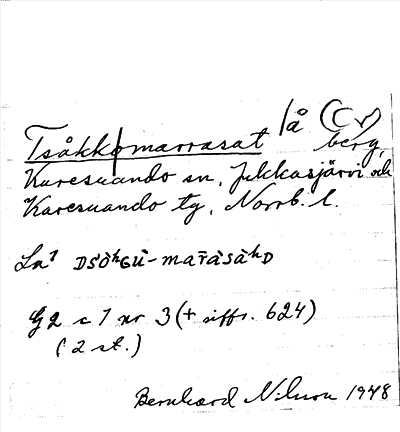 Tsåkkomarrasat /å
berg,
Karesuando sn, Jukkasjärvi och
Karesuando tg, Norrb. l.
G2 c 1 nr 3 (+ siffr. 624)
(2 st.)
Bernhard Nilsson 1948